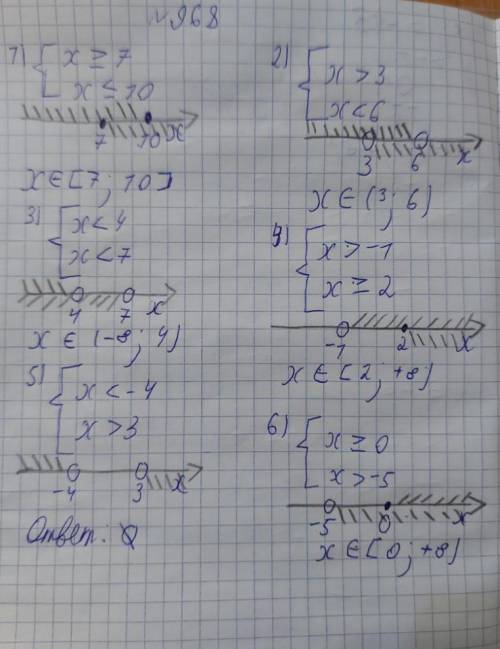 №968
1) { x ≥ 7
x ≤ 10
7 10 x
x ∈ [7; 10]
2) { x > 3
x < 6
3 6 x
x ∈ (3; 6)
3) { x < 4
x < 7
4 7 x
x ∈ (-8; 4)
4) { x > -1
x ≥ 2
-1 2 x
x ∈ [2; +8)
5) { x < -4
x > 3
-4 3 x
Ответ: Ø
6) { x ≥ 0
x > -5
-5 0 x
x ∈ [0; +8)